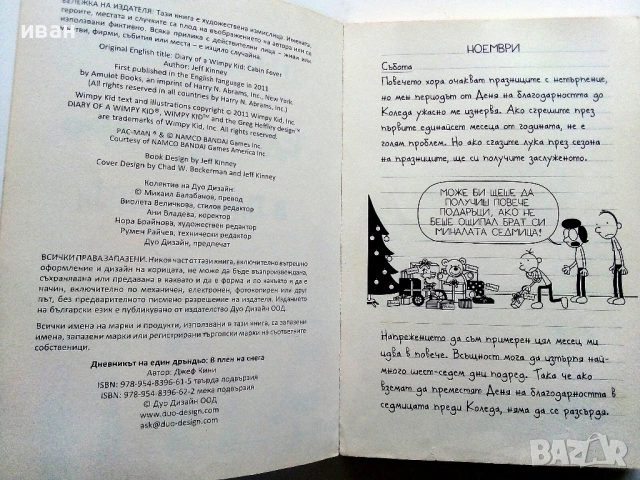 иван
БЕЛЕЖКА НА ИЗДАТЕЛЯ: Тази книга е художествена измислица. Имената,
героите, местата и случките са плод на въображението на автора или са
използвани фиктивно. Всяка прилика с действителни лица – живи или
фирми, събития или места – е изцяло случайна.
Original English title: Diary of a Wimpy Kid: Cabin Fever
Author: Jeff Kinney
First published in the English language in 2011
by Amulet Books, an imprint of Harry N. Abrams, Inc., New York.
(All rights reserved in all countries by Harry N. Abrams, Inc.)
Wimpy Kid text and illustrations copyright © 2011 Wimpy Kid, Inc.
DIARY OF A WIMPY KID®, WIMPY KID™ and the Greg Heffley design™
are trademarks of Wimpy Kid, Inc. All rights reserved.
PAC-MAN ® & © NAMCO BANDAI Games Inc.
Courtesy of NAMCO BANDAI Games America Inc.
Book Design by Jeff Kinney
Cover Design by Chad W. Beckerman and Jeff Kinney
Колектив на Дуо Дизайн:
© Михаил Балабанов, превод
Виолета Величкова, стилов редактор
Ани Владева, коректор
Нора Брайнова, художествен редактор
Румен Райчев, технически редактор
Дуо Дизайн, предпечат
ВСИЧКИ ПРАВА ЗАПАЗЕНИ. Никоя част от тази книга, включително вътрешно
оформление и дизайн на корицата, не може да бъде възпроизвеждана,
съхранявана или предавана в каквато и да е форма и по какъвто и да е
начин, включително по механичен, електронен, фотокопирен или друг
път, без предварителното писмено разрешение на издателя. Изданието
на български език е публикувано от издателство Дуо Дизайн ООД.
Всички имена на марки и продукти, използвани в тази книга, са запазени
имена, запазени марки или регистрирани търговски марки на съответните
собственици.
Дневникът на един дръндьо: В плен на снега
Автор: Джеф Кини
ISBN: 978-954-8396-61-5 твърда подвързия
ISBN: 978-954-8396-62-2 мека подвързия
© Дуо Дизайн ООД
www.duo-design.com
ask@duo-design.com
НОЕМВРИ
Събота
Повечето хора очакват празниците с нетърпение,
но мен периодът от Деня на благодарността до
Коледа ужасно ме изнервя. Ако сгрешите през
първите единайсет месеца от годината, не е
голям проблем. Но ако сгазите лука през сезона
на празниците, ще си получите заслуженото.
МОЖЕ БИ ЩЕШЕ ДА
ПОЛУЧИШ ПОВЕЧЕ
ПОДАРЪЦИ, АКО НЕ
БЕШЕ ОЩИПАЛ БРАТ СИ
МИНАЛАТА СЕДМИЦА!
Напрежението да съм примерен цял месец ми
идва в повече. Всъщност мога да изтърпя най-
много шест-седем дни подред. Така че ако
вземат да преместят Деня на благодарността в
седмицата преди Коледа, няма да се разсърдя.
BAZAR